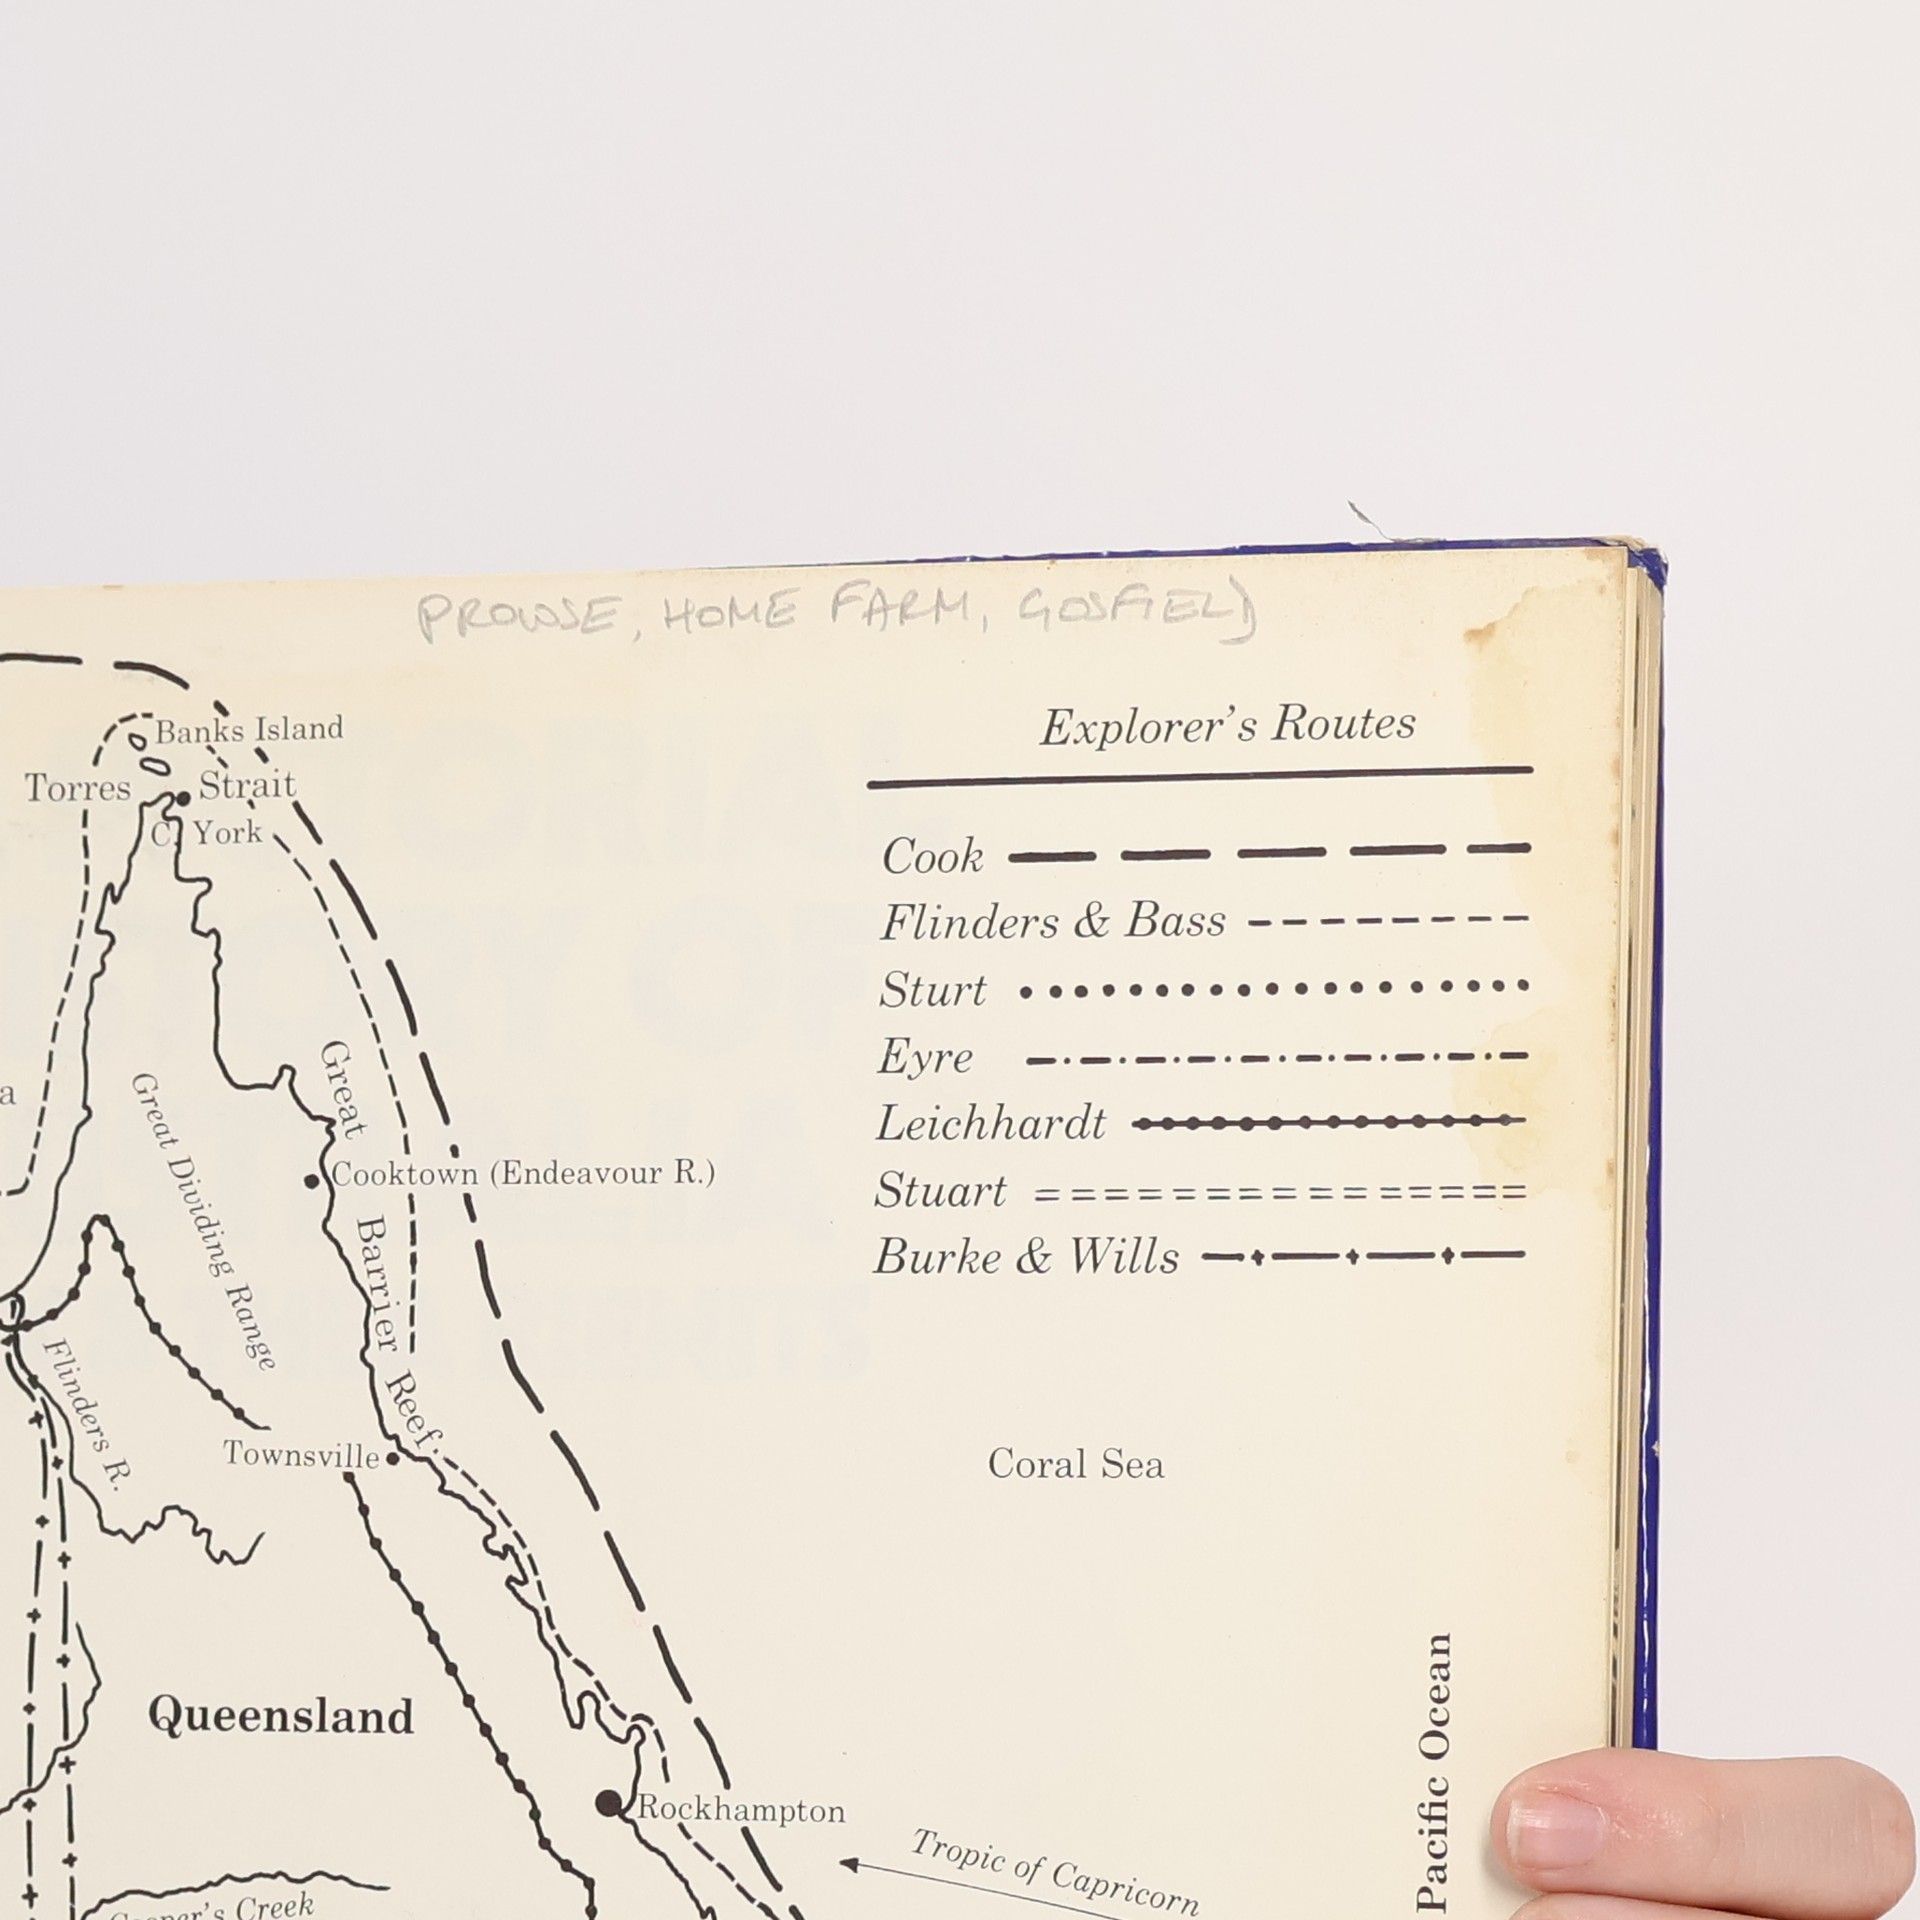 PROWSE, HOME FARM, GOSFIELD
Explorer's Routes
Cook
Flinders & Bass
Sturt
Eyre
Leichhardt
Stuart
Burke & Wills
Banks Island
Torres Strait
C. York
a
Great Barrier Reef
Great Dividing Range
Cooktown (Endeavour R.)
Flinders R.
Townsville
Coral Sea
Queensland
Pacific Ocean
Rockhampton
Tropic of Capricorn
Cooper's Creek